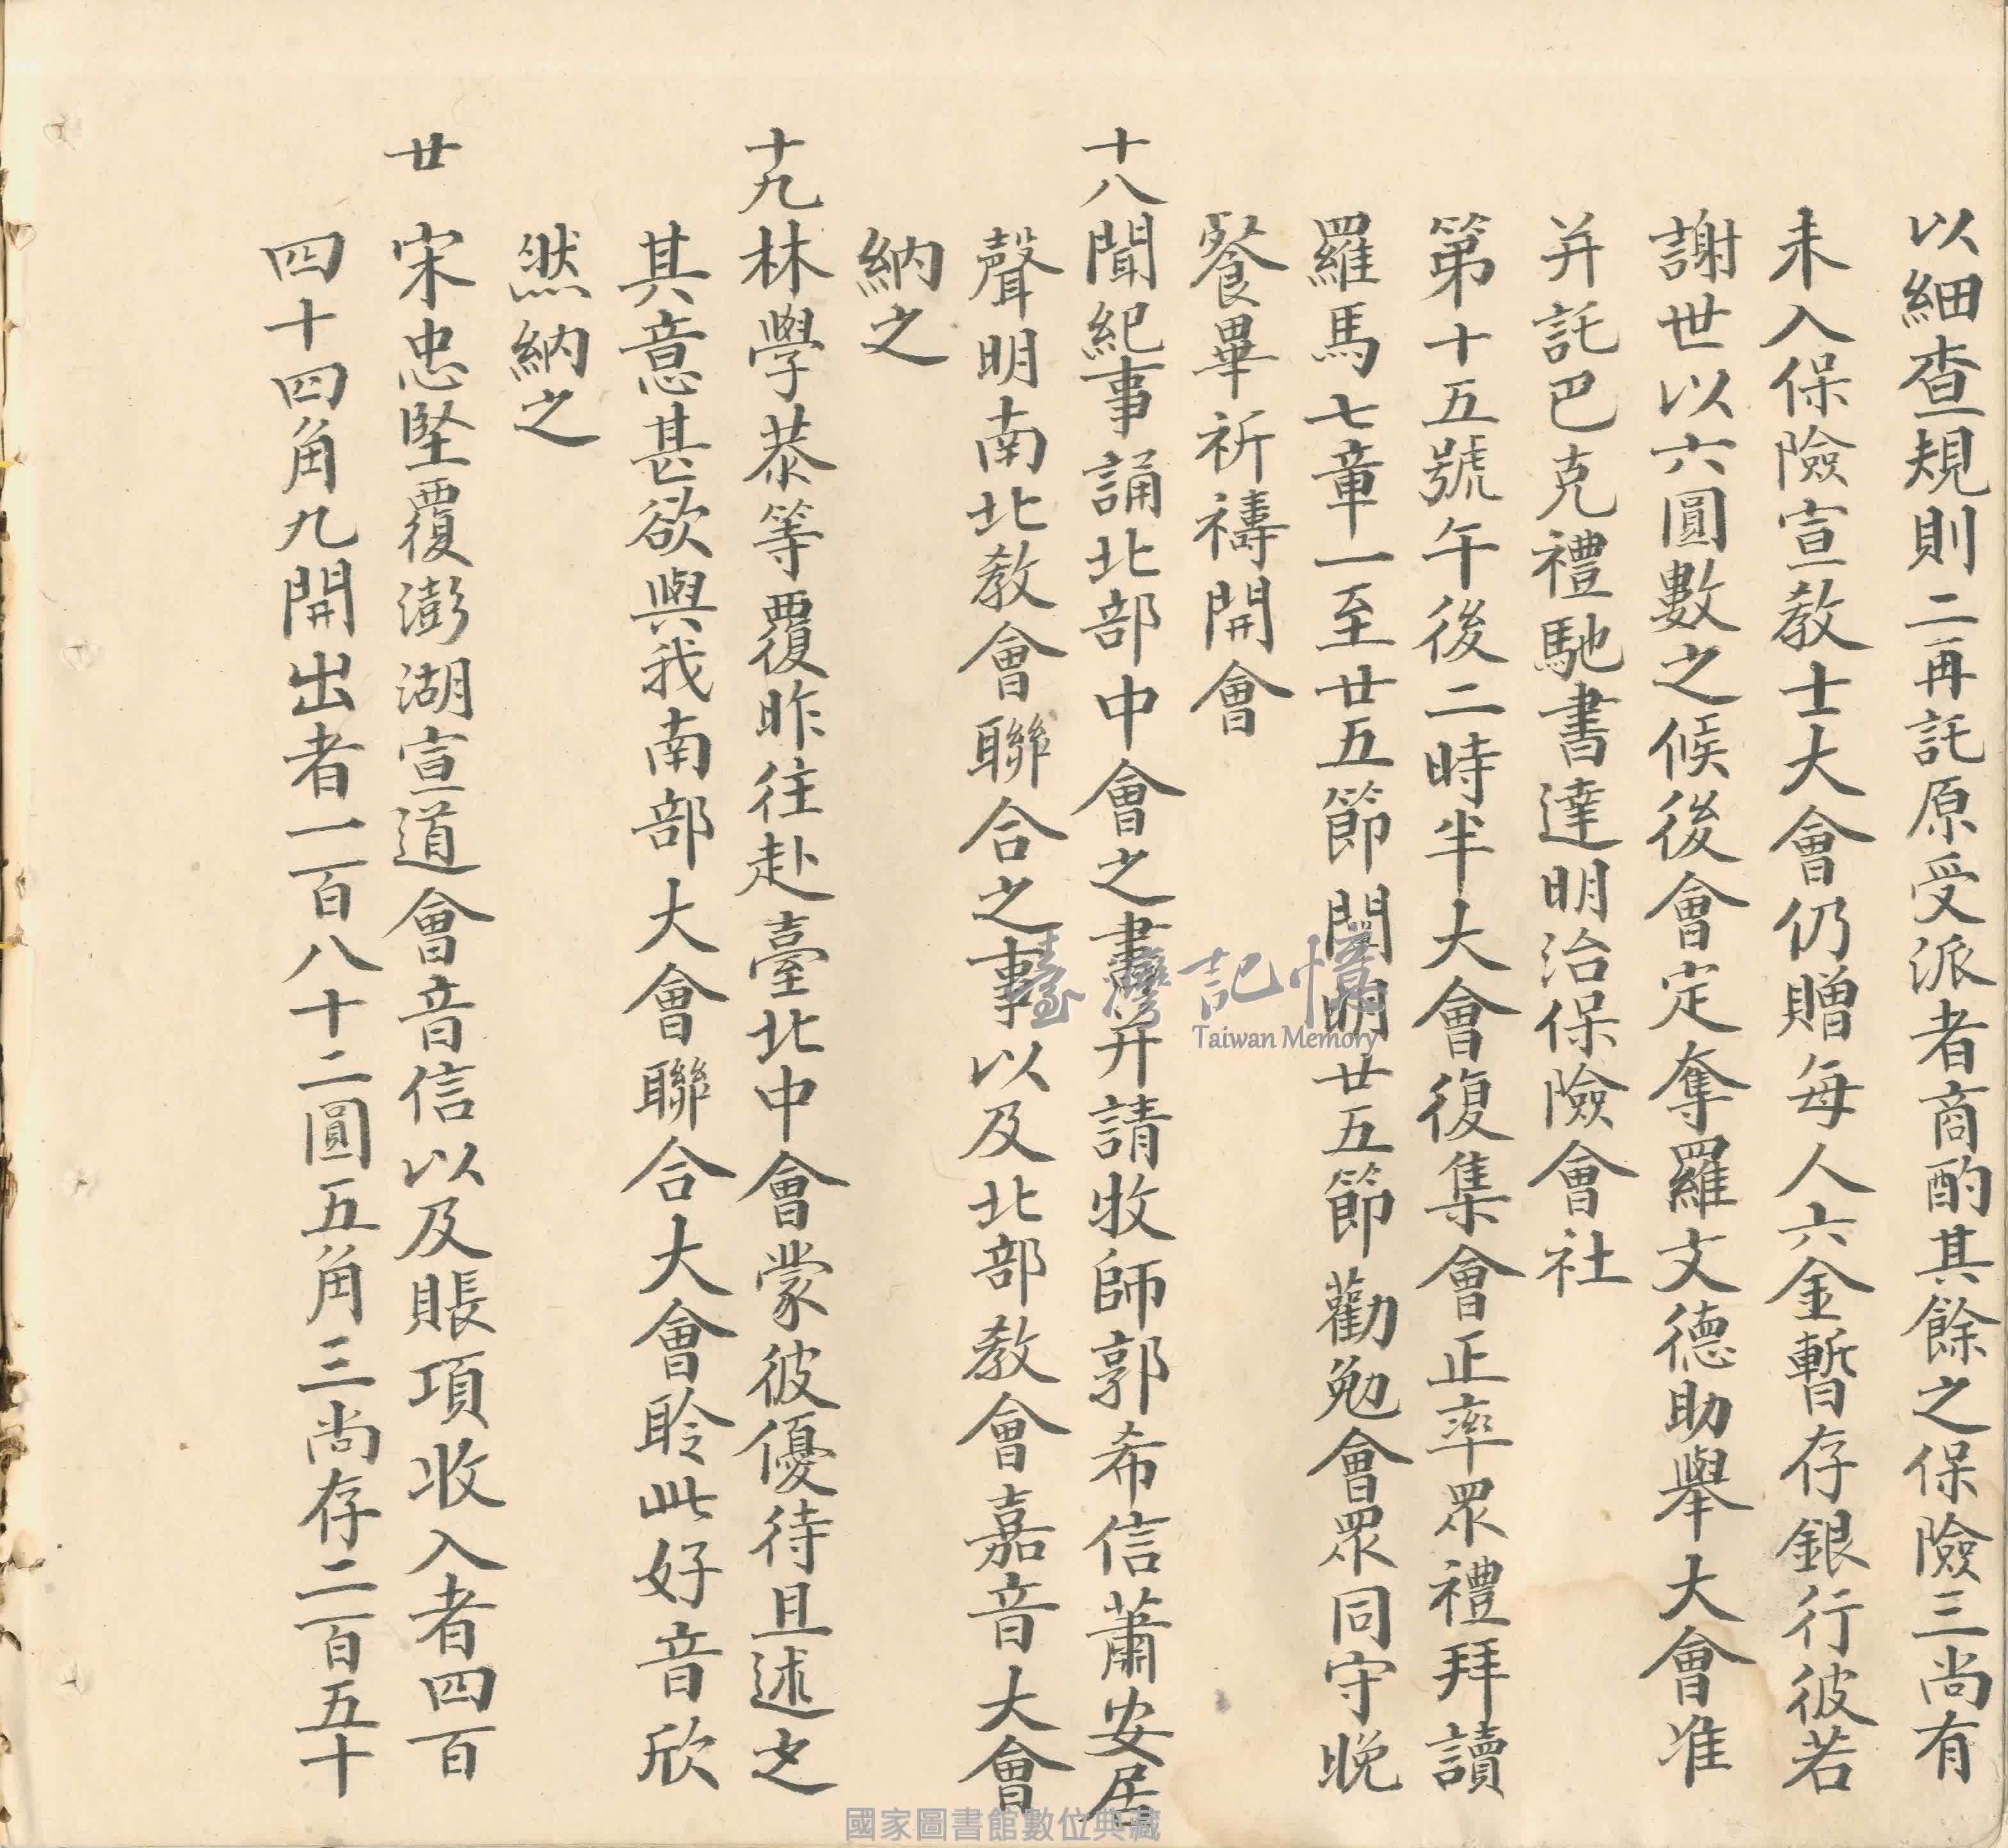 以細查規則二再託原受派者商酌其餘之保險三尚有
未入保險宣教士大會仍贈每人六金暫存銀行彼若
謝世以六圓數之候後會定奪羅文德助舉大會准
并託巴克禮馳書達明治保險會社
第十五號午後二時半大會復集會正率眾禮拜讀
羅馬七章一至廿五節闡明廿五節勸勉會眾同守晚
餐畢祈禱開會
十八聞紀事誦北部中會之書并請牧師郭希信蕭安居
聲明南北教會聯合之事以及北部教會嘉音大會
納之
十九林學恭等覆昨往赴臺北中會蒙彼優待且述之
其意甚欲與我南部大會聯合大會聆此好音欣
然納之
廿宋忠堅覆澎湖宣道會音信以及賬項收入者四百
四十四角九開出者一百八十二圓五角三尚存二百五十
臺灣記憶
Taiwan Memory
國家圖書館數位典藏